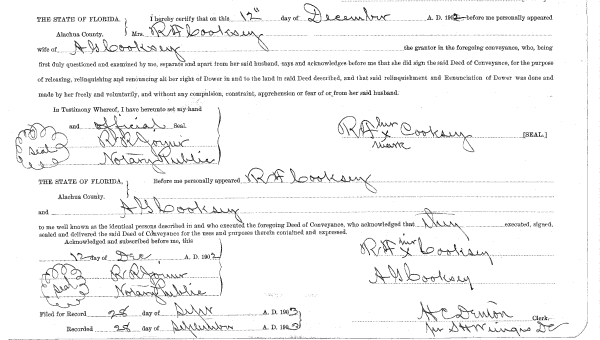 THE STATE OF FLORIDA, } I hereby certify that on this 12" day of December A. D. 1902 before me personally appeared
Alachua County. Mrs. R H Cooksey
wife of A G Cooksey the grantor in the foregoing conveyance, who, being
first duly questioned and examined by me, separate and apart from her said husband, says and acknowledges before me that she did sign the said Deed of Conveyance, for the purpose
of releasing, relinquishing and renouncing all her right of Dower in and to the land in said Deed described, and that said relinquishment and Renunciation of Dower was done and
made by her freely and voluntarily, and without any compulsion, constraint, apprehension or fear of or from her said husband.
In Testimony Whereof, I have hereunto set my hand
and official Seal
seal
R R Joyner
Notary Public
her
R H x Cooksey [SEAL.]
mark
THE STATE OF FLORIDA, } Before me personally appeared R H Cooksey
Alachua County.
and A G Cooksey
to me well known as the identical persons described in and who executed the foregoing Deed of Conveyance, who acknowledged that they executed, signed,
sealed and delivered the said Deed of Conveyance for the uses and purposes therein contained and expressed.
Acknowledged and subscribed before me, this
12 day of Dec A. D. 1902
seal
R R Joyner
Notary Public
her
R H x Cooksey
A G Cooksey
Filed for Record 28 day of Sept A. D. 1903
Recorded 28 day of September A. D. 1903
H C Denton Clerk.